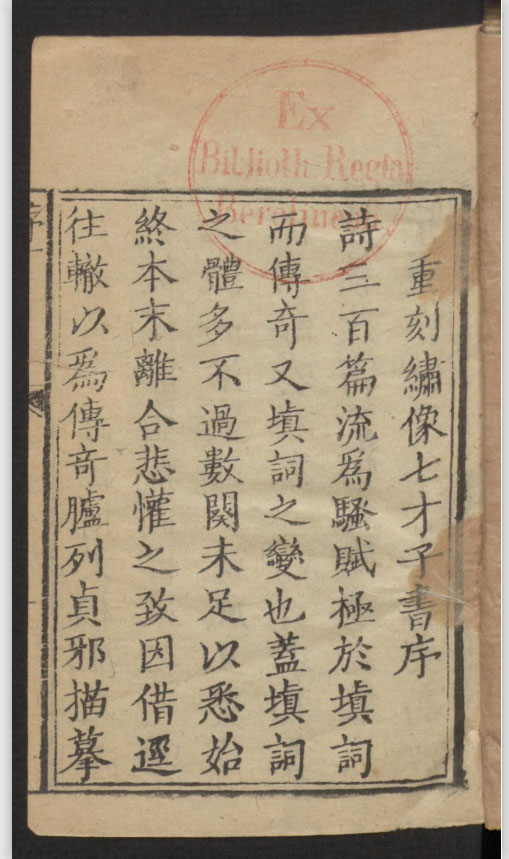 Ex
Biblioth. Regia
Berolinen
重刻繡像七才子書序
詩三百篇流爲騷賦極於填詞
而傳奇又填詞之變也蓋填詞
之體多不過數闋未足以悉始
終本末離合悲懽之致因借逕
往轍以爲傳奇臚列貞邪描摹
序